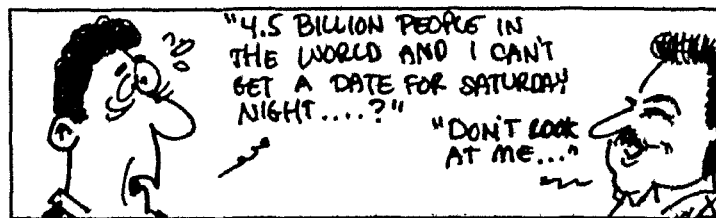 "4.5 BILLION PEOPLE IN
THE WORLD AND I CAN'T
GET A DATE FOR SATURDAY
NIGHT....?"
"DON'T LOOK
AT ME..."